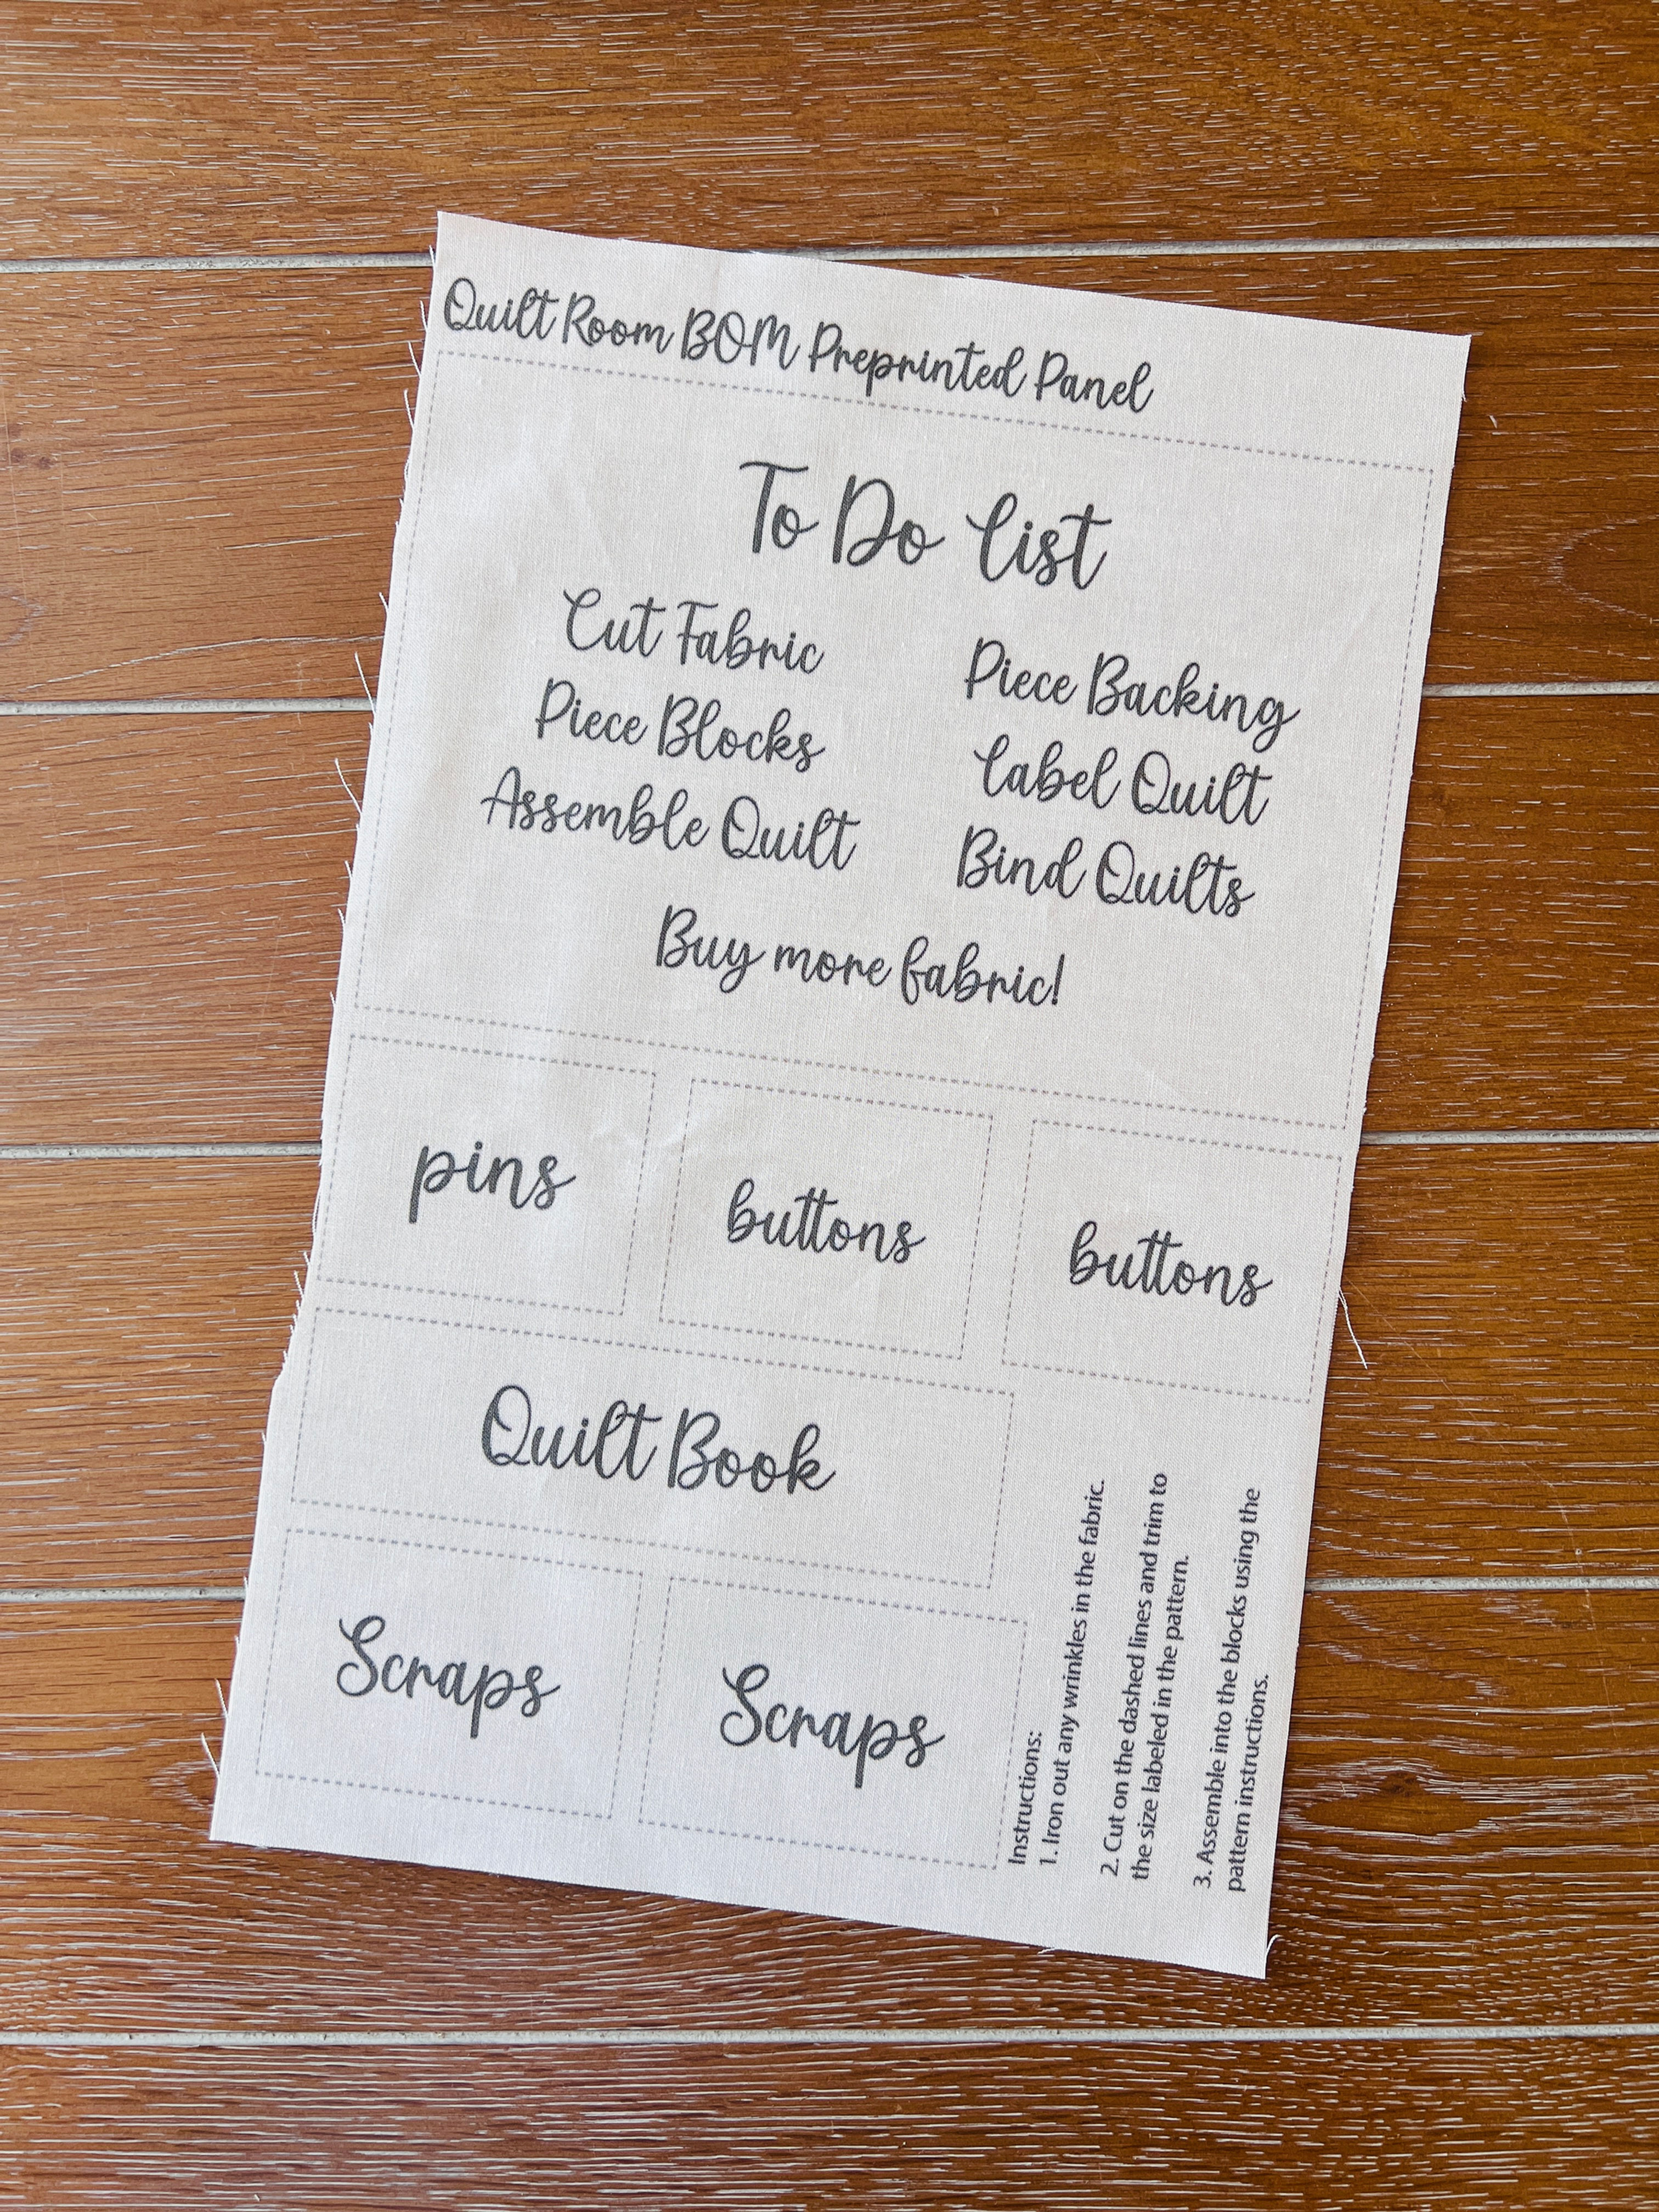 Quilt Room BOM Preprinted Panel
To Do List
Cut Fabric
Piece Blocks
Assemble Quilt
Piece Backing
Label Quilt
Bind Quilts
Buy more fabric!
pins
buttons
buttons
Quilt Book
Scraps
Scraps
Instructions:
1. Iron out any wrinkles in the fabric.
2. Cut on the dashed lines and trim to
the size labeled in the pattern.
3. Assemble into the blocks using the
pattern instructions.